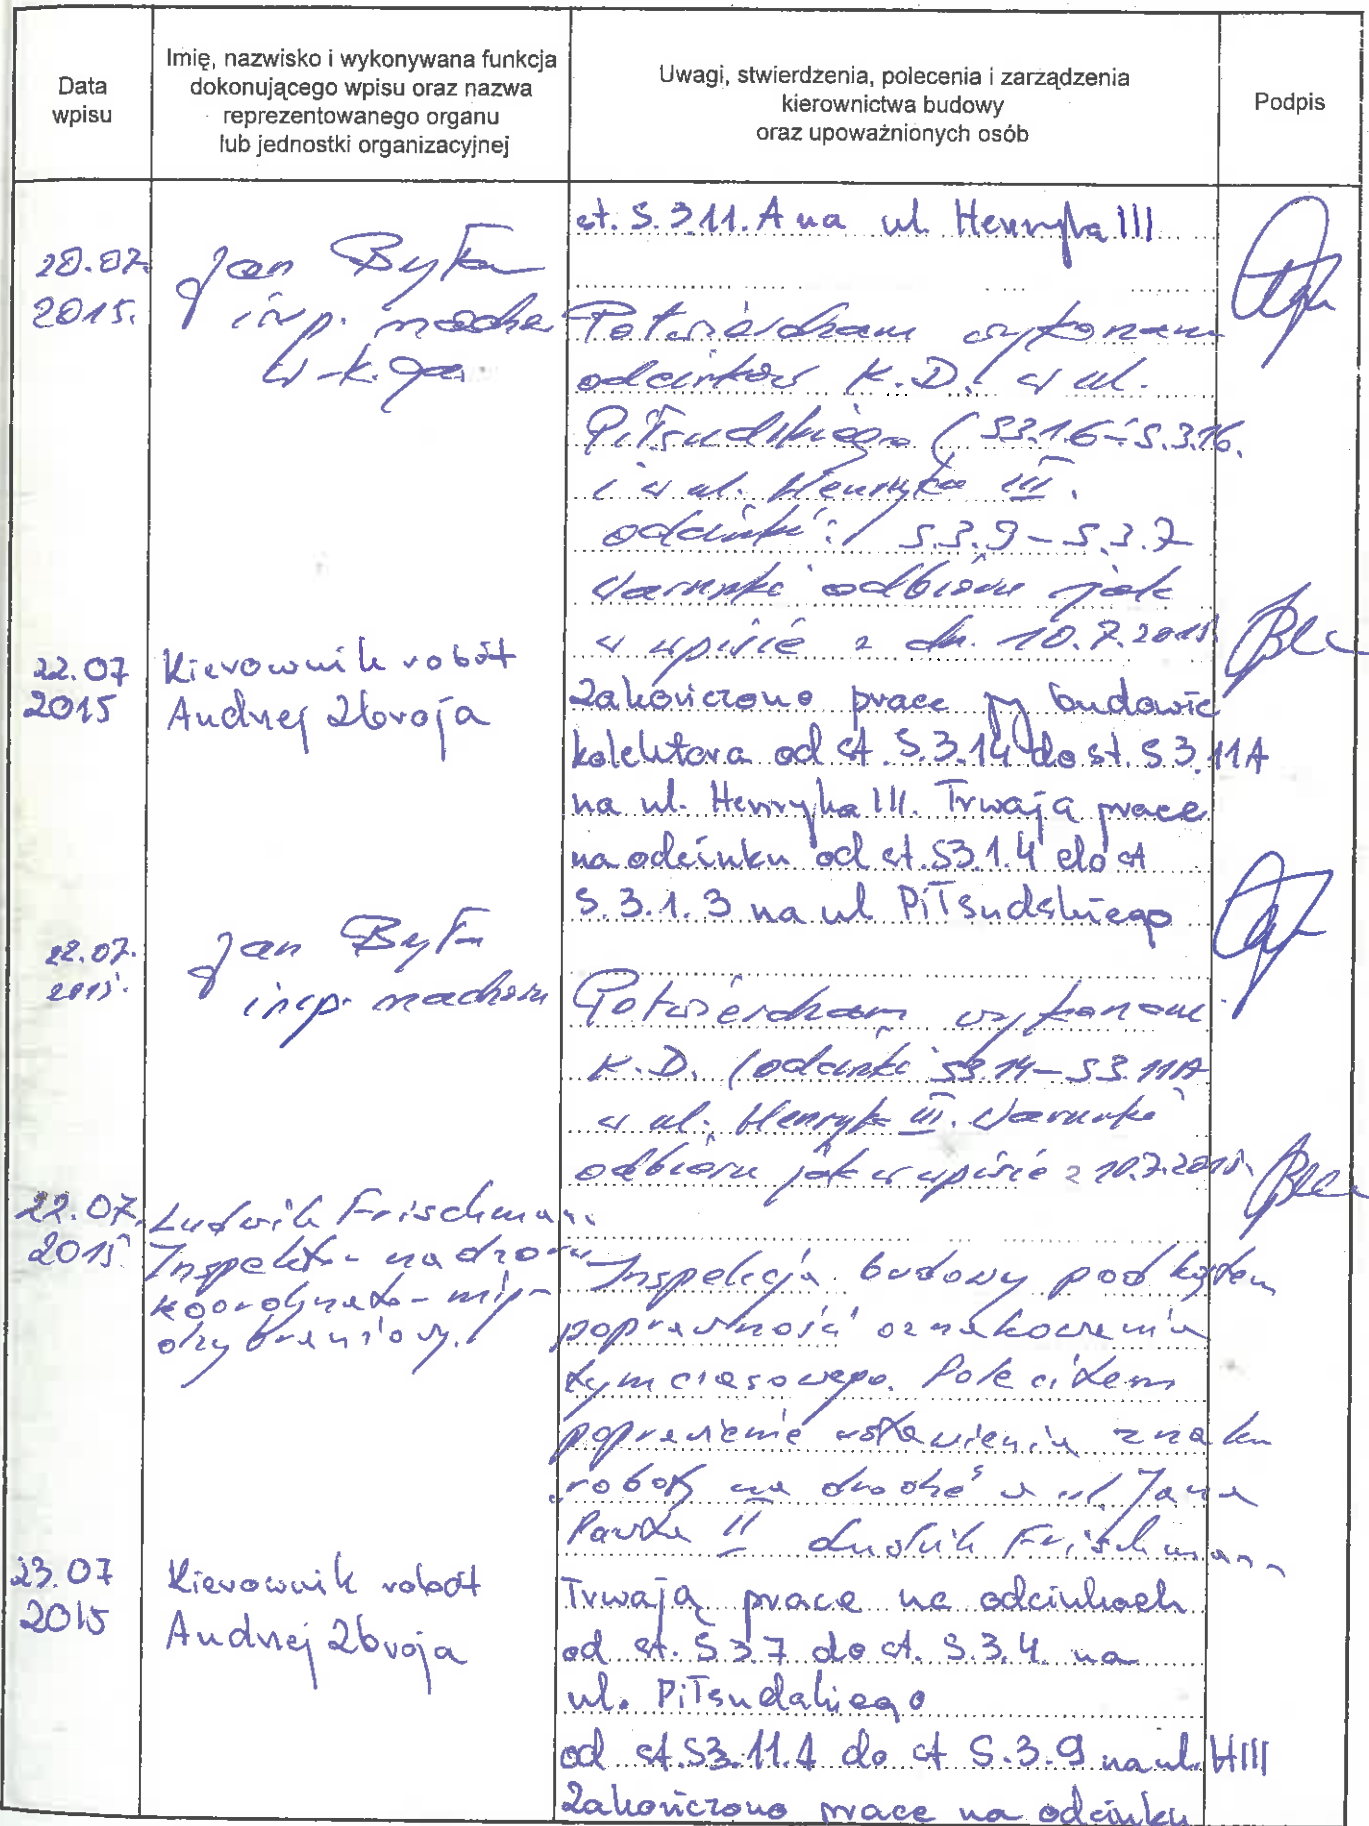 Data
wpisu
Imię, nazwisko i wykonywana funkcja
dokonującego wpisu oraz nazwa
reprezentowanego organu
lub jednostki organizacyjnej
Uwagi, stwierdzenia, polecenia i zarządzenia
kierownictwa budowy
oraz upoważnionych osób
Podpis
st. S.3.11.A na ul. Henryka III
20.07.
2015.
Jan Byk
insp. nadzo
w-k. ga
Potwierdzam wykonanie
odcinków K.D. w ul.
Piłsudskiego (S3.1.6-S.3.16.
i w ul. Henryka III.
odcinki: S.3.9-S.3.7
Warunki odbioru jak
w wpisie z dn. 10.7.2015
22.07
2015
Kierownik robót
Andrzej Zbroja
Zakończono prace przy budowie
kolektora od st. S.3.14 do st. S3.11A
na ul. Henryka III. Trwają prace
na odcinku od st.S3.1.4 do st
S.3.1.3 na ul Piłsudskiego
22.07.
2015.
Jan
insp. nadzoru
Potwierdzam wykonanie
K.D. (odcinki S3.14-S3.11A
w ul. Henryka III. Warunki
odbioru jak w wpisie z 10.7.2015.
22.07.
2015
Ludwik Frischmann
Inspektor nadzoru
koordynator - mię-
dzybranżowy.
Inspekcja budowy pod kątem
poprawności oznakowania
tymczasowego. Poleciłem
poprawienie ustawienia znaku
"roboty na drodze" w ul. Jana
Pawła II Ludwik Frischmann
23.07
2015
Kierownik robót
Andrzej Zbroja
Trwają prace na odcinkach
od st. S.3.7 do st. S.3.4 na
ul. Piłsudskiego
od st.S3.11.A do st S.3.9 na ul. HIII
Zakończono prace na odcinku